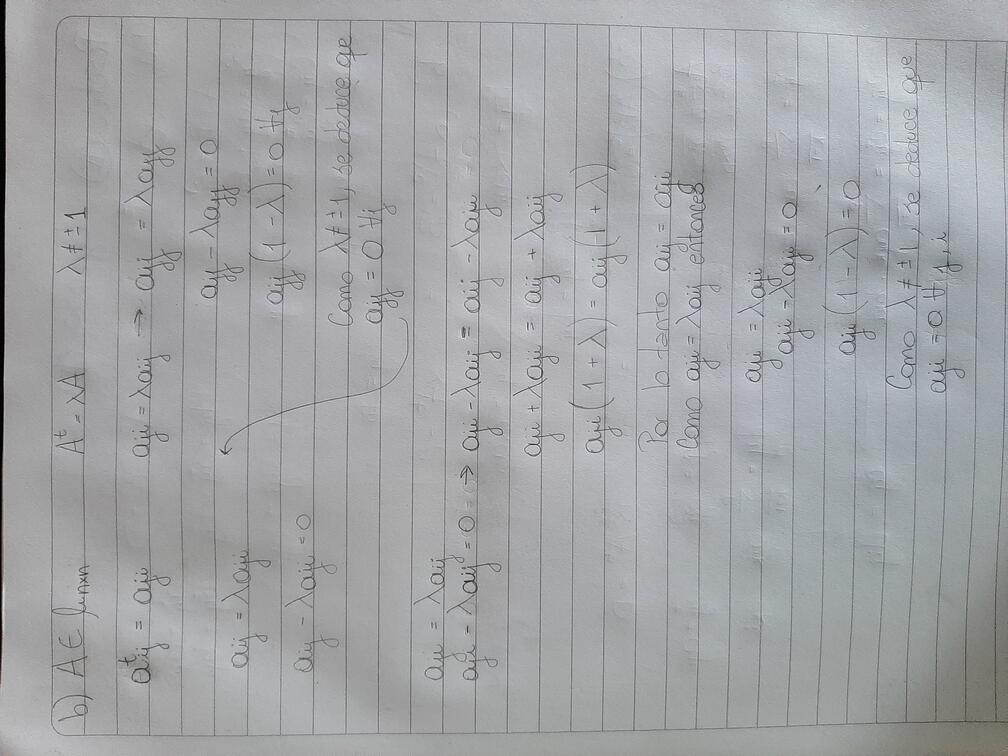 b) A ∈ ℳnxn    Aᵗ = λA    λ ≠ ±1
aᵗij = aji    aji = λaij → ajj = λajj
ajj - λajj = 0
aij = λaji
ajj (1 - λ) = 0 ∀j
aij - λaji = 0
Como λ ≠ ±1, se deduce que
ajj = 0 ∀j
aji = λaij
aji - λaij = 0 → aji - λaij = aij - λaji
aji + λaji = aij + λaij
aji (1 + λ) = aij (1 + λ)
Por lo tanto aij = aji
Como aji = λaij entonces
aji = λaji
aji - λaji = 0
aji (1 - λ) = 0
Como λ ≠ ±1, se deduce que
aji = 0 ∀ j, i